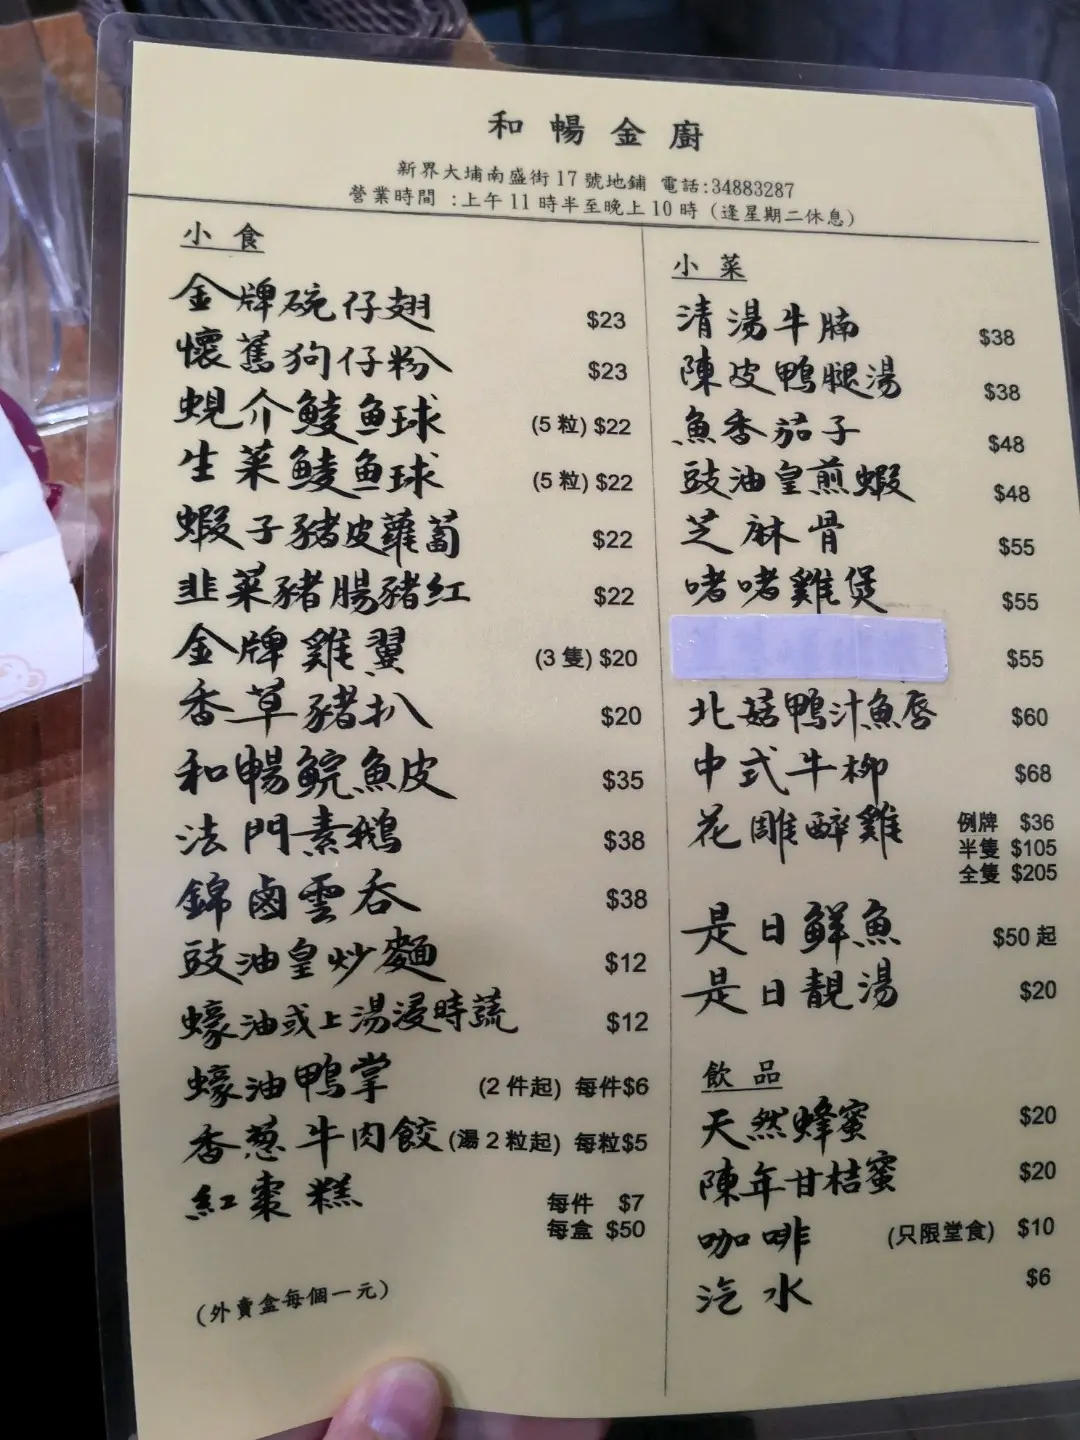 和暢金廚
新界大埔南盛街17號地鋪 電話:34883287
營業時間 :上午11時半至晚上10時 (逢星期二休息)
小食
金牌碗仔翅 $23
懷舊狗仔粉 $23
蜆介鯪魚球 (5粒) $22
生菜鯪魚球 (5粒) $22
蝦子豬皮蘿蔔 $22
韭菜豬腸豬紅 $22
金牌雞翼 (3隻) $20
香草豬扒 $20
和暢鯇魚皮 $35
法門素鵝 $38
錦鹵雲吞 $38
豉油皇炒麵 $12
蠔油或上湯浸時蔬 $12
蠔油鴨掌 (2件起) 每件$6
香蔥牛肉餃 (湯2粒起) 每粒$5
紅棗糕 每件 $7
每盒 $50
(外賣盒每個一元)
小菜
清湯牛腩 $38
陳皮鴨腿湯 $38
魚香茄子 $48
豉油皇煎蝦 $48
芝麻骨 $55
啫啫雞煲 $55
$55
北菇鴨汁魚唇 $60
中式牛柳 $68
花雕醉雞 例牌 $36
半隻 $105
全隻 $205
是日鮮魚 $50起
是日靚湯 $20
飲品
天然蜂蜜 $20
陳年甘桔蜜 $20
咖啡 (只限堂食) $10
汽水 $6